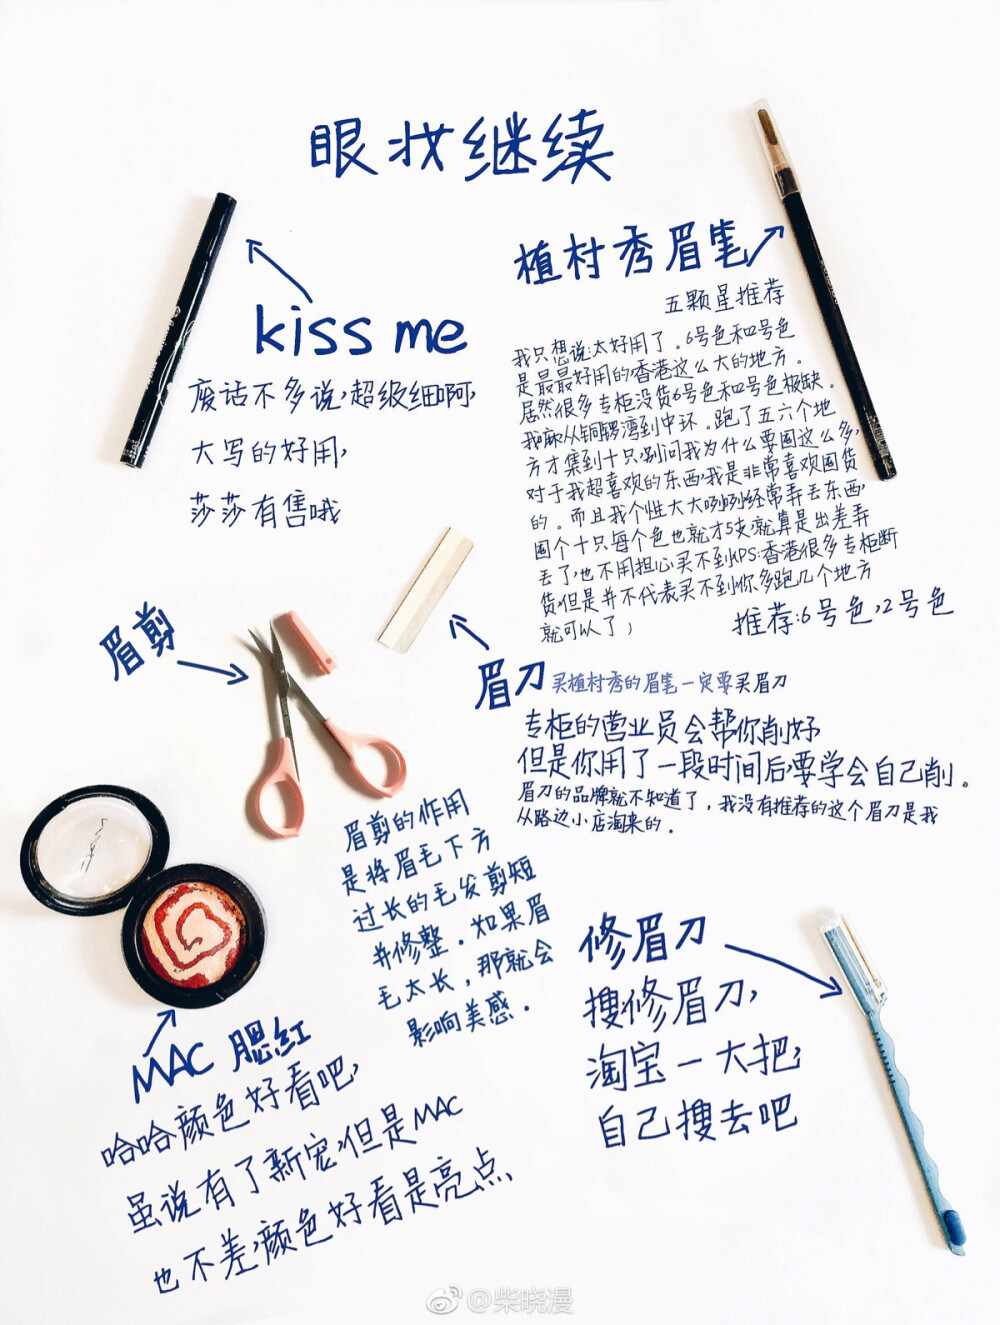 眼妆继续
kiss me
废话不多说，超级细啊，
大写的好用，
莎莎有售哦
植村秀眉笔
五颗星推荐
我只想说：太好用了。6号色和2号色
是最最好用的，香港这么大的地方。
居然很多专柜没货6号色和2号色极缺。
我麻从铜锣湾到中环。跑了五六个地
方才集到十只，别问我为什么要囤这么多，
对于我超喜欢的东西，我是非常喜欢囤货
的。而且我个性大大咧咧经常弄丢东西，
囤个十只每个色也就才5支，就算是出差弄
丢了，也不用担心买不到（PS：香港很多专柜断
货但是并不代表买不到你多跑几个地方
就可以了）
推荐：6号色，2号色
眉剪
眉刀 买植村秀的眉笔一定要买眉刀
专柜的营业员会帮你削好
但是你用了一段时间后要学会自己削。
眉刀的品牌就不知道了，我没有推荐的这个眉刀是我
从路边小店淘来的。
眉剪的作用
是将眉毛下方
过长的毛发剪短
并修整。如果眉
毛太长，那就会
影响美感。
修眉刀
搜修眉刀，
淘宝一大把，
自己搜去吧
MAC
MAC 腮红
哈哈颜色好看吧，
虽说有了新宠，但是MAC
也不差，颜色好看是亮点、
@柴晓漫